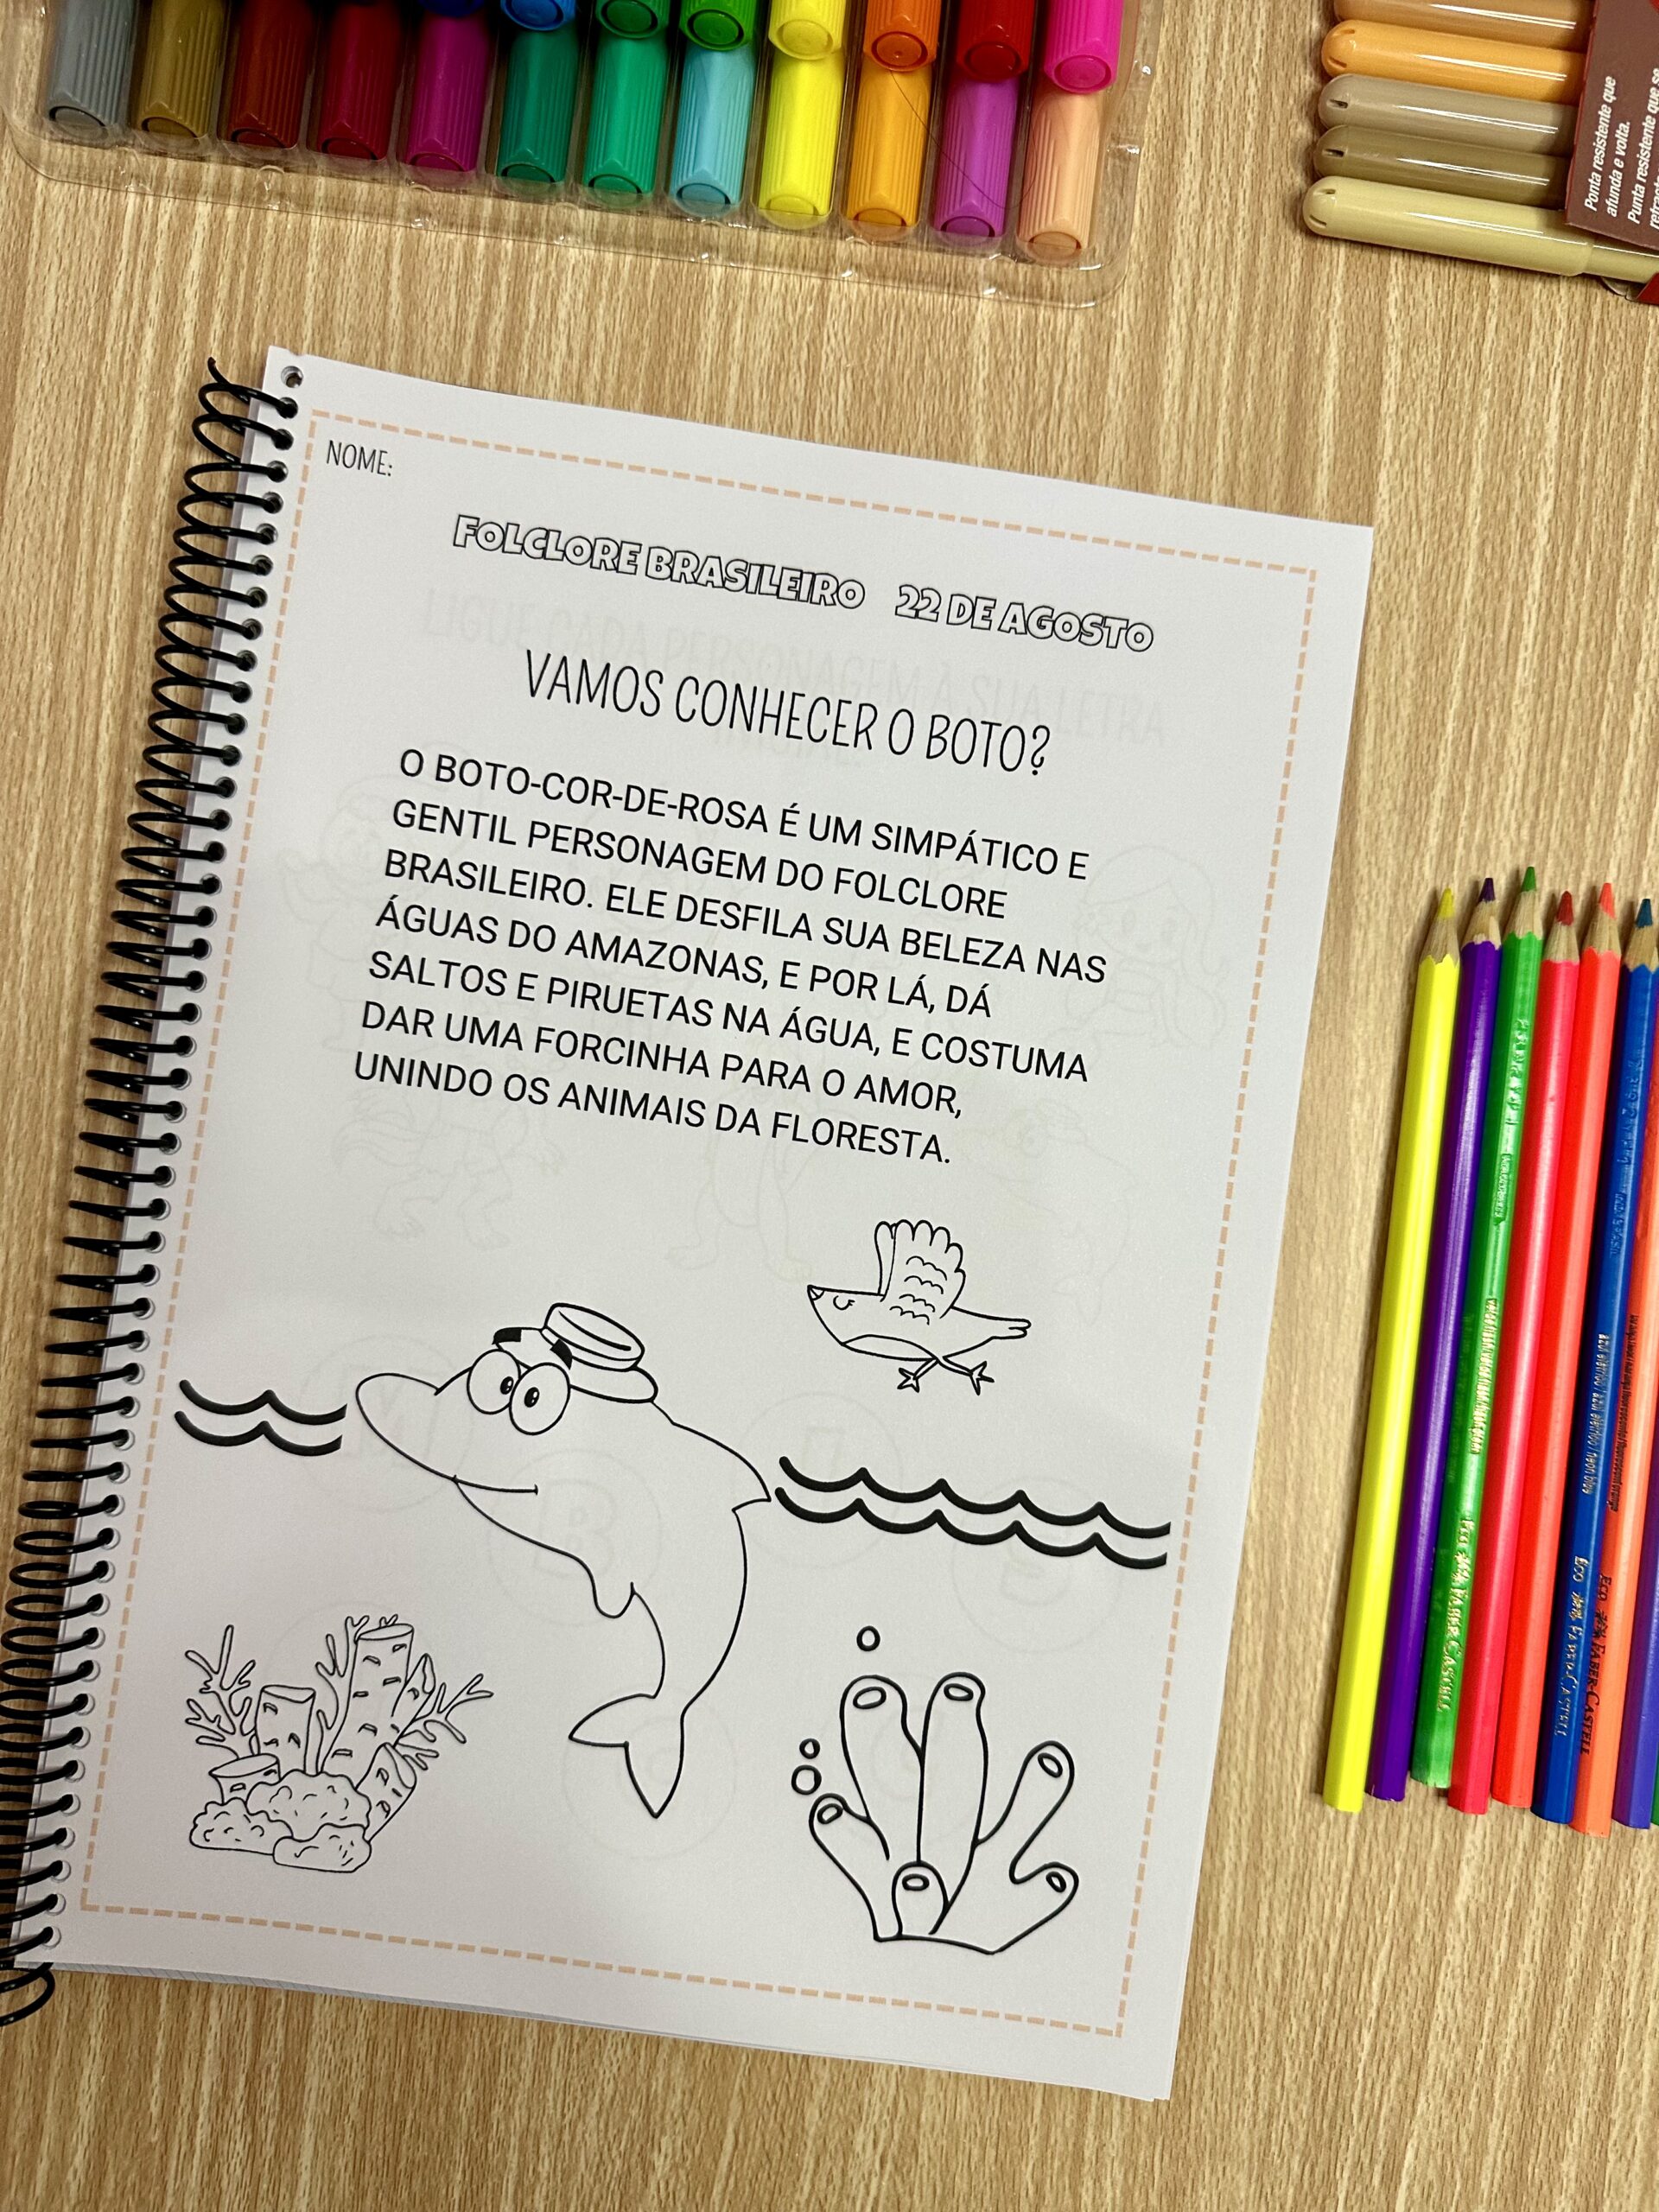 Ponta resistente que
afunda e volta.
Punta resistente que se
NOME:
FOLCLORE BRASILEIRO 22 DE AGOSTO
LIGUE CADA PERSONAGEM À SUA LETRA
VAMOS CONHECER O BOTO?
O BOTO-COR-DE-ROSA É UM SIMPÁTICO E
GENTIL PERSONAGEM DO FOLCLORE
BRASILEIRO. ELE DESFILA SUA BELEZA NAS
ÁGUAS DO AMAZONAS, E POR LÁ, DÁ
SALTOS E PIRUETAS NA ÁGUA, E COSTUMA
DAR UMA FORCINHA PARA O AMOR,
UNINDO OS ANIMAIS DA FLORESTA.
M
B
ECO FABER-CASTELL
ECO FABER-CASTELL
ECO FABER-CASTELL